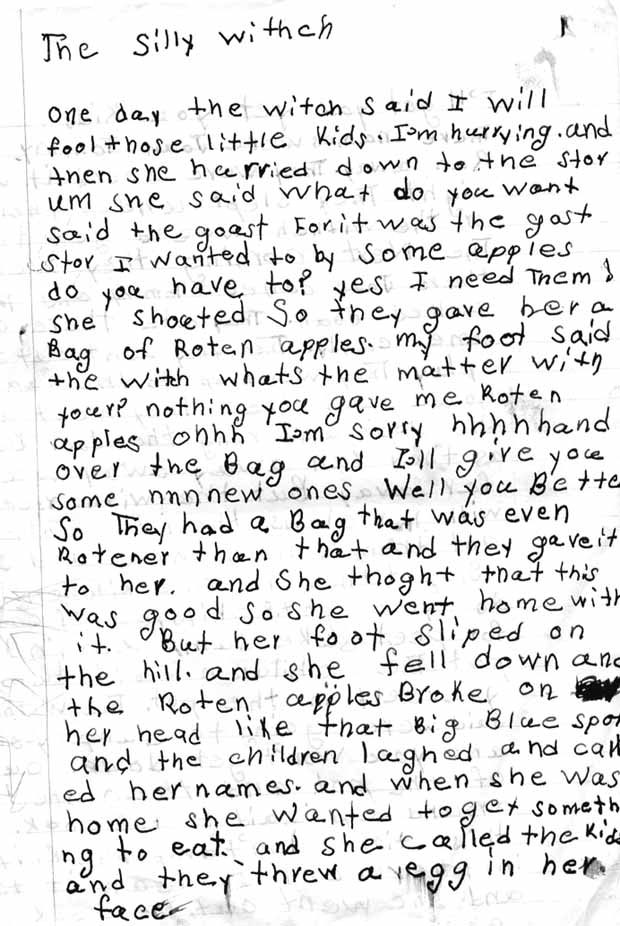 The Silly withch
one day the witch said I will
fool those little kids. I'm hurrying. and
then she hurried down to the stor
um she said what do you want
said the goast For it was the gost
stor I wanted to by some apples
do you have to? yes I need Them!
she shoeted So they gave her a
Bag of Roten apples. my foot said
the with whats the matter with
your? nothing you gave me Roten
apples ohhh I'm sorry hhhhhand
over the Bag and I'll give you
some nnnnew ones Well you Bette
So They had a Bag that was even
Rotener than that and they gave it
to her. and She thoght that this
was good so she went home with
it. But her foot sliped on
the hill. and she fell down and
the Roten apples Broke on
her head like that Big Blue spot
and the children laghed and call
ed her names. and when she was
home she wanted to get someth
ng to eat. and she called the Kids
and they threw a egg in her
face